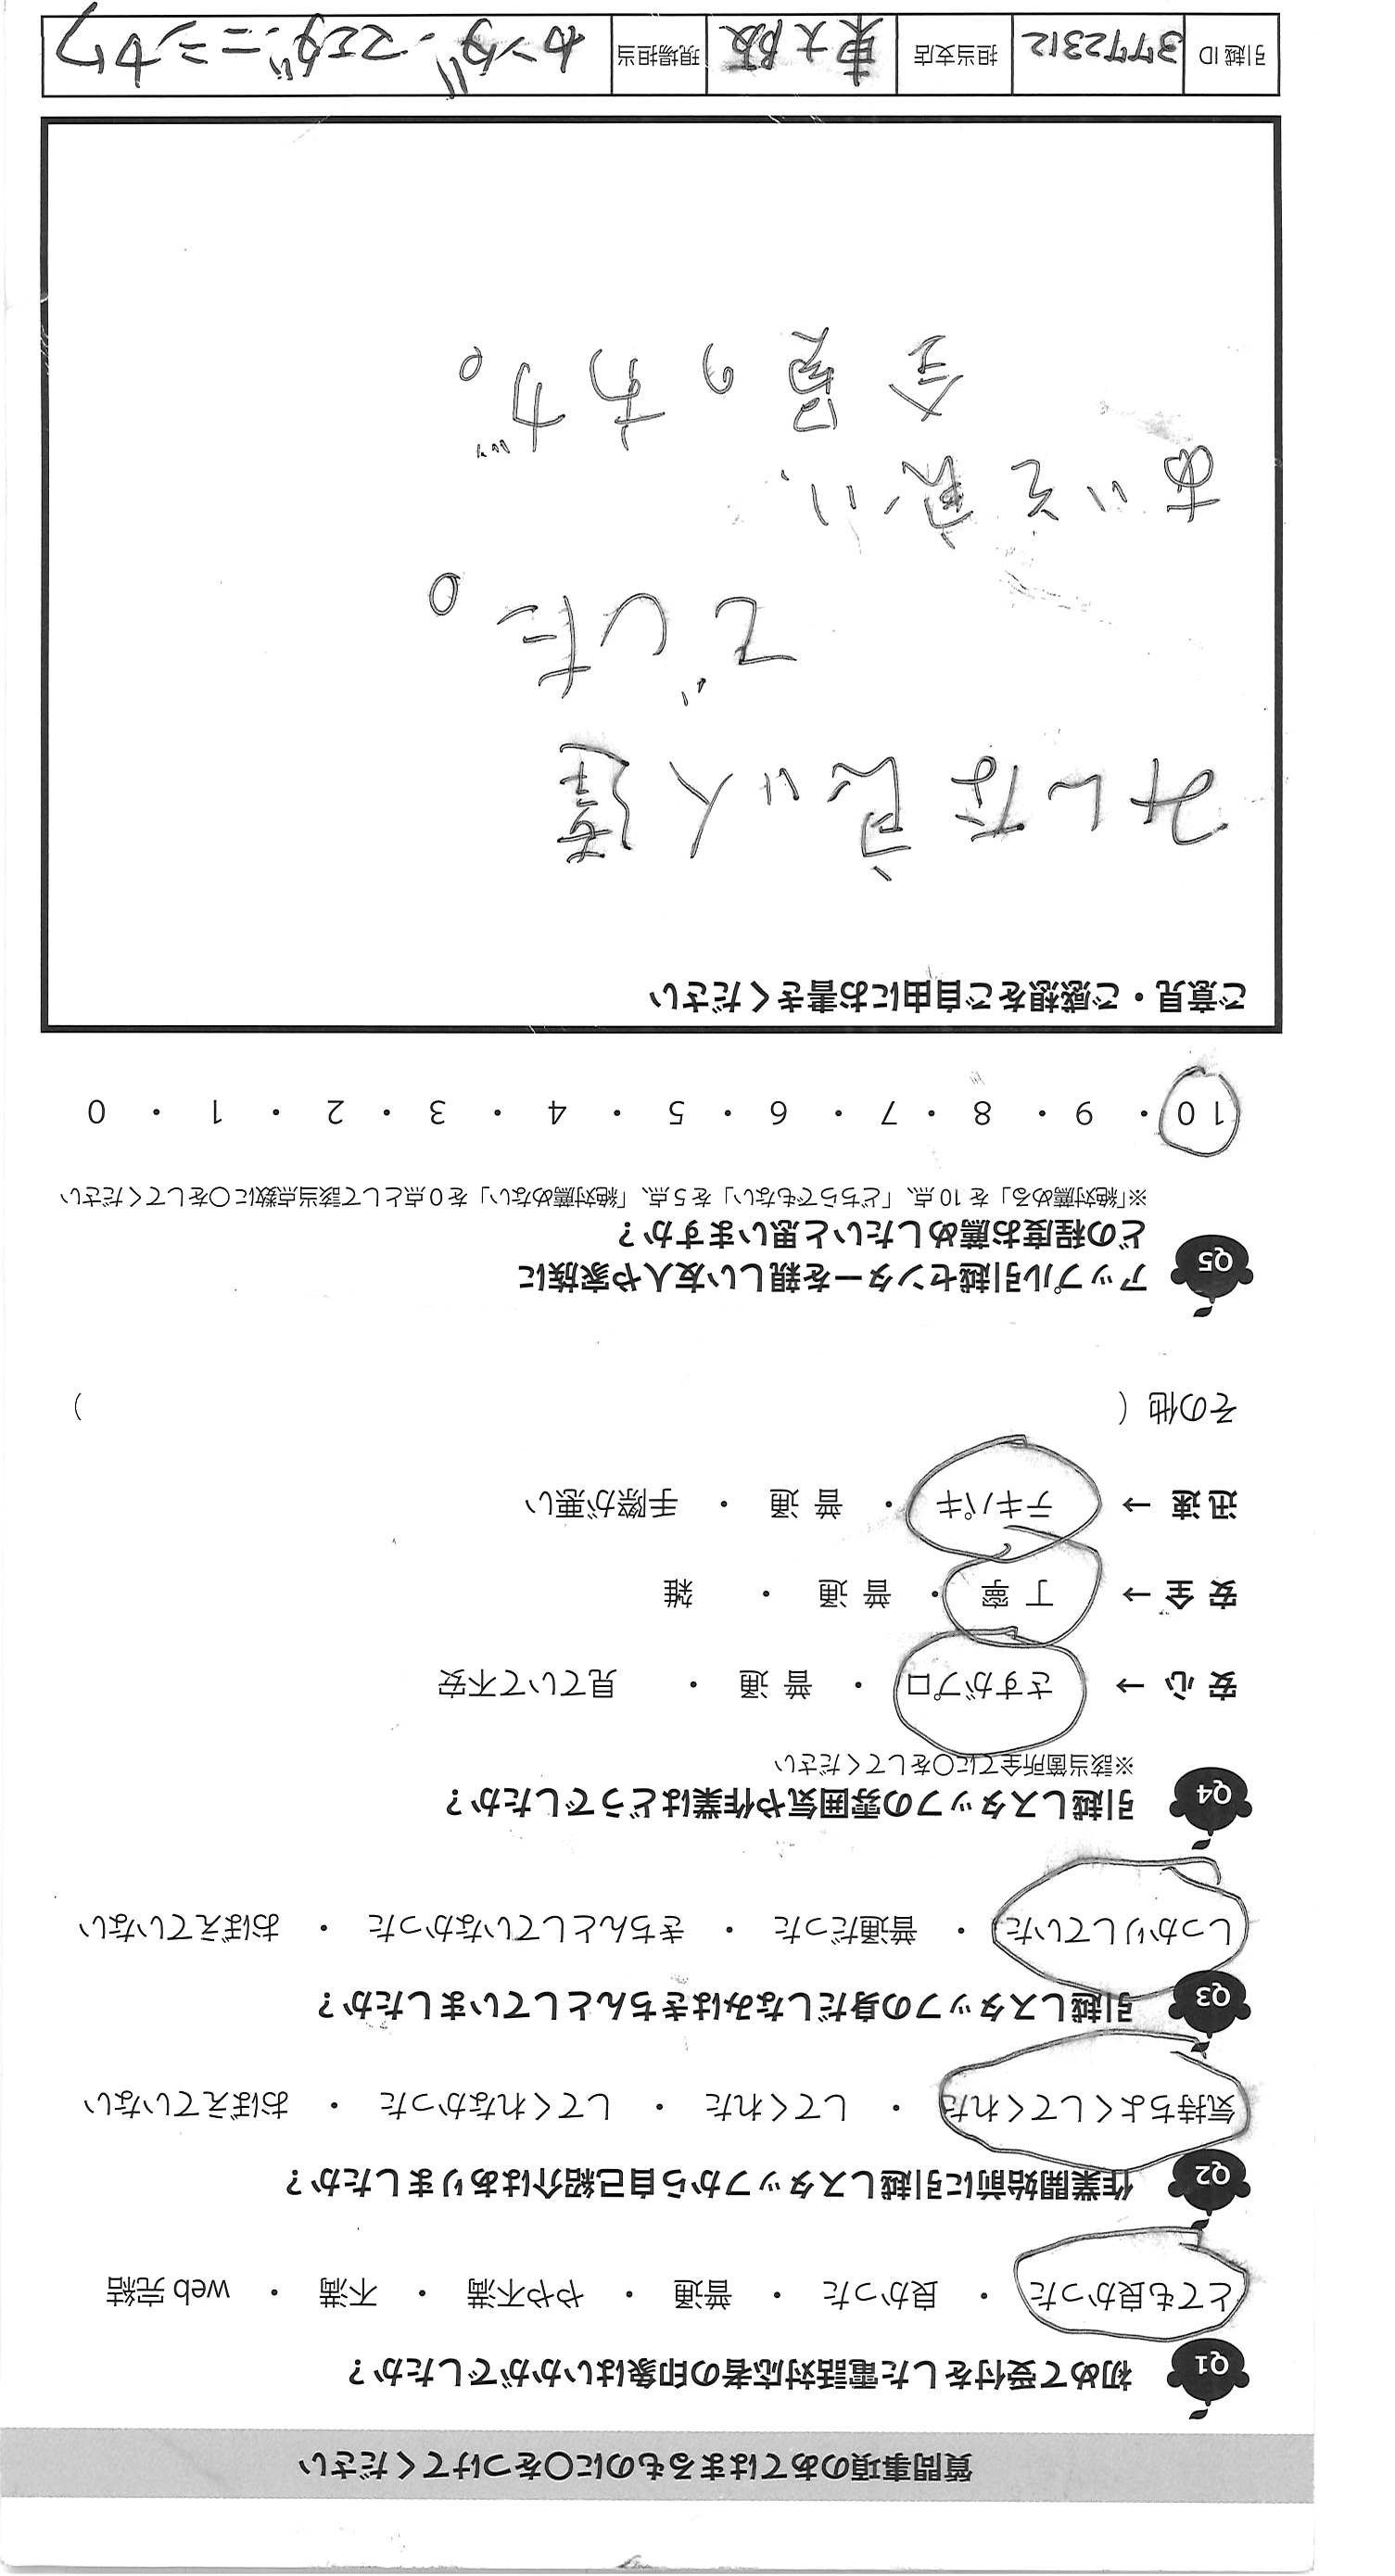 質問事項のあてはまるものに○をつけてください
Q1 初めて受付をした電話対応者の印象はいかがでしたか？
とても良かった ・ 良かった ・ 普通 ・ やや不満 ・ 不満 ・ web 完結
Q2 作業開始前に引越しスタッフから自己紹介はありましたか？
気持ちよくしてくれた ・ してくれた ・ してくれなかった ・ おぼえていない
Q3 引越しスタッフの身だしなみはきちんとしていましたか？
しっかりしていた ・ 普通だった ・ きちんとしていなかった ・ おぼえていない
Q4 引越しスタッフの雰囲気や作業はどうでしたか？
※該当箇所全てに○をして下さい
安心 → さすがプロ ・ 普通 ・ 見ていて不安
安全 → 丁寧 ・ 普通 ・ 雑
迅速 → テキパキ ・ 普通 ・ 手際が悪い
その他（ ）
Q5 アップル引越センターを親しい友人や家族に
どの程度お薦めしたいと思いますか？
※「絶対薦める」を10点、「どちらでもない」を5点、「絶対薦めない」を0点として該当点数に○をしてください
10 ・ 9 ・ 8 ・ 7 ・ 6 ・ 5 ・ 4 ・ 3 ・ 2 ・ 1 ・ 0
ご意見・ご感想をご自由にお書きください
みんな良い人達
でした。
あいそ良い、
全員の方が。
引越ID 37772312 担当支店 東大阪 現場担当 カンダ、マエダ、ニシカワ